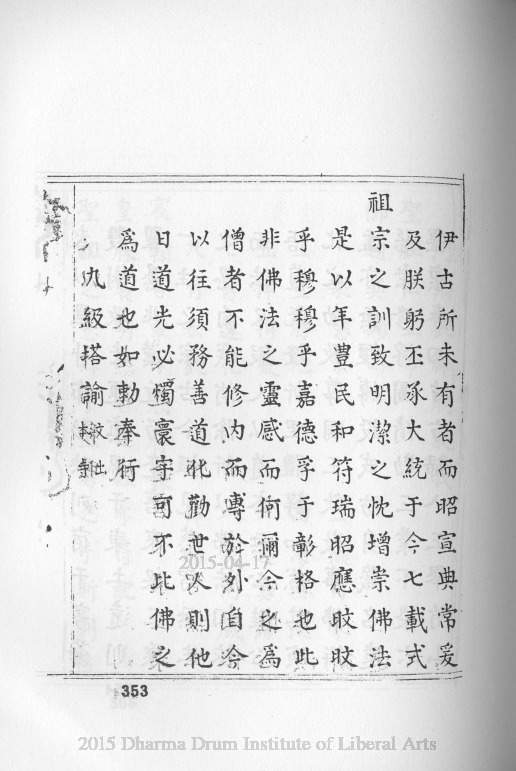 伊古所未有者而昭宣典常爰
及朕躬丕承大統于今七載式
祖宗之訓致明潔之忱增崇佛法
是以年豊民和符瑞昭應旼旼
乎穆穆乎嘉德孚于彰格也此
非佛法之靈感而何爾今之為
僧者不能修內而專於外自今
以往須務善道化勸世人則他
日道光必燭寰宇可不比佛之
為道也如勅奉行
九級塔諭
353
2015-04-17
2015 Dharma Drum Institute of Liberal Arts